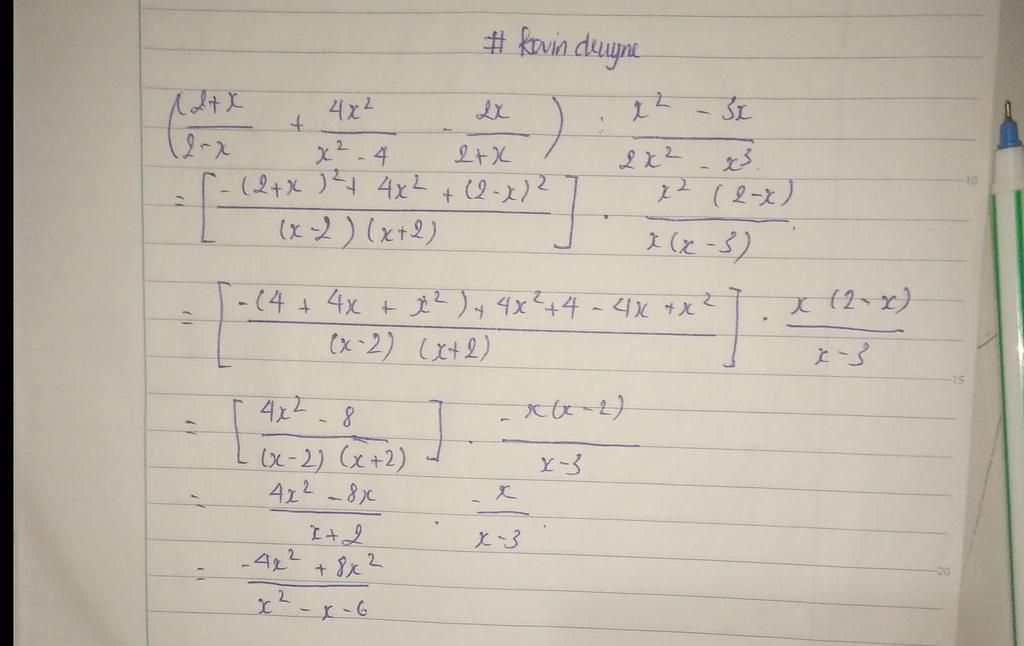 # kovin deuyne
( 2+x / 2-x + 4x² / x² - 4 - 2x / 2+x ) : x² - 3x / 2x² - x³.
= [ -(2+x)² + 4x² + (2-x)² / (x-2)(x+2) ] . x² (2-x) / x(x-3)
= [ -(4 + 4x + x²) + 4x² + 4 - 4x + x² / (x-2) (x+2) ] . x (2-x) / x-3
= [ 4x² - 8 / (x-2) (x+2) ] . - x(x-2) / x-3
= 4x² - 8x / x+2 . - x / x-3 .
= -4x² + 8x² / x² - x - 6
10
15
20